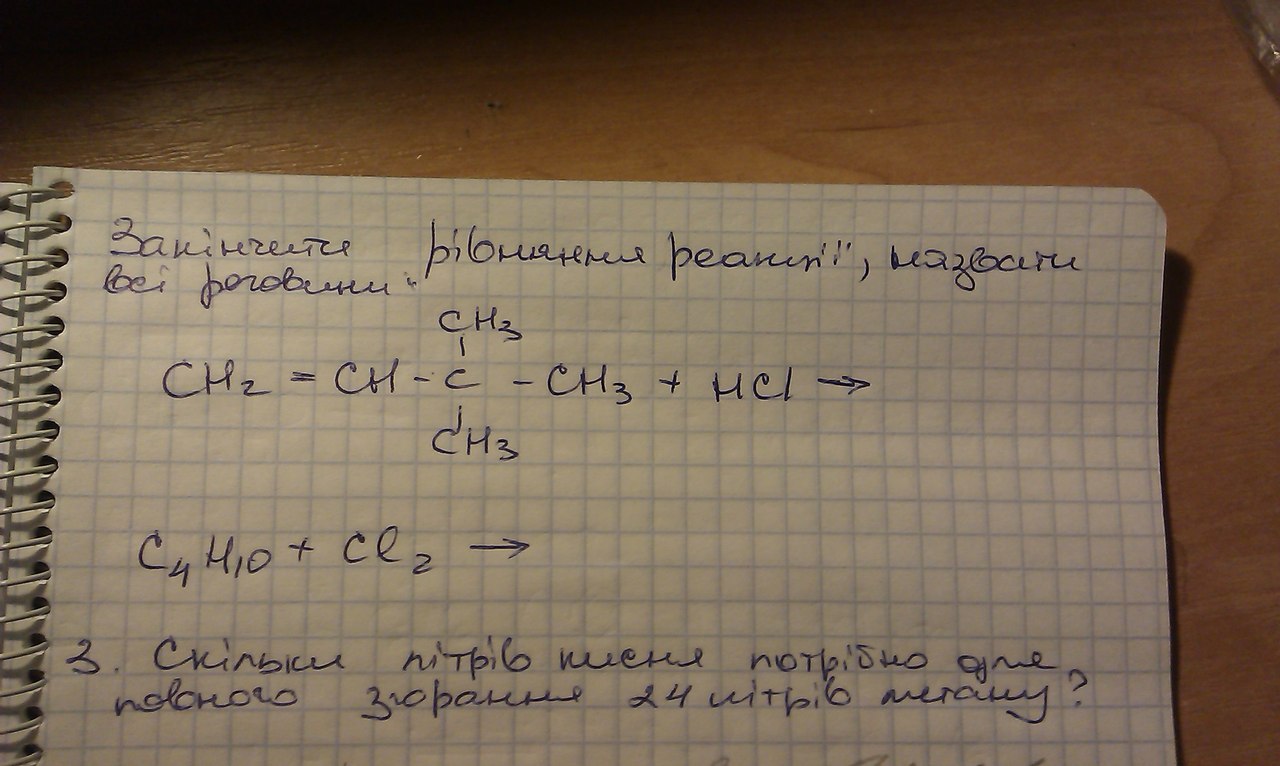 Закінчити рівняння реакції, назвати
всі речовини:
CH3
CH2 = CH - C - CH3 + HCl →
CH3
C4H10 + Cl2 →
3. Скільки літрів кисня потрібно для
повного згорання 24 літрів метану?